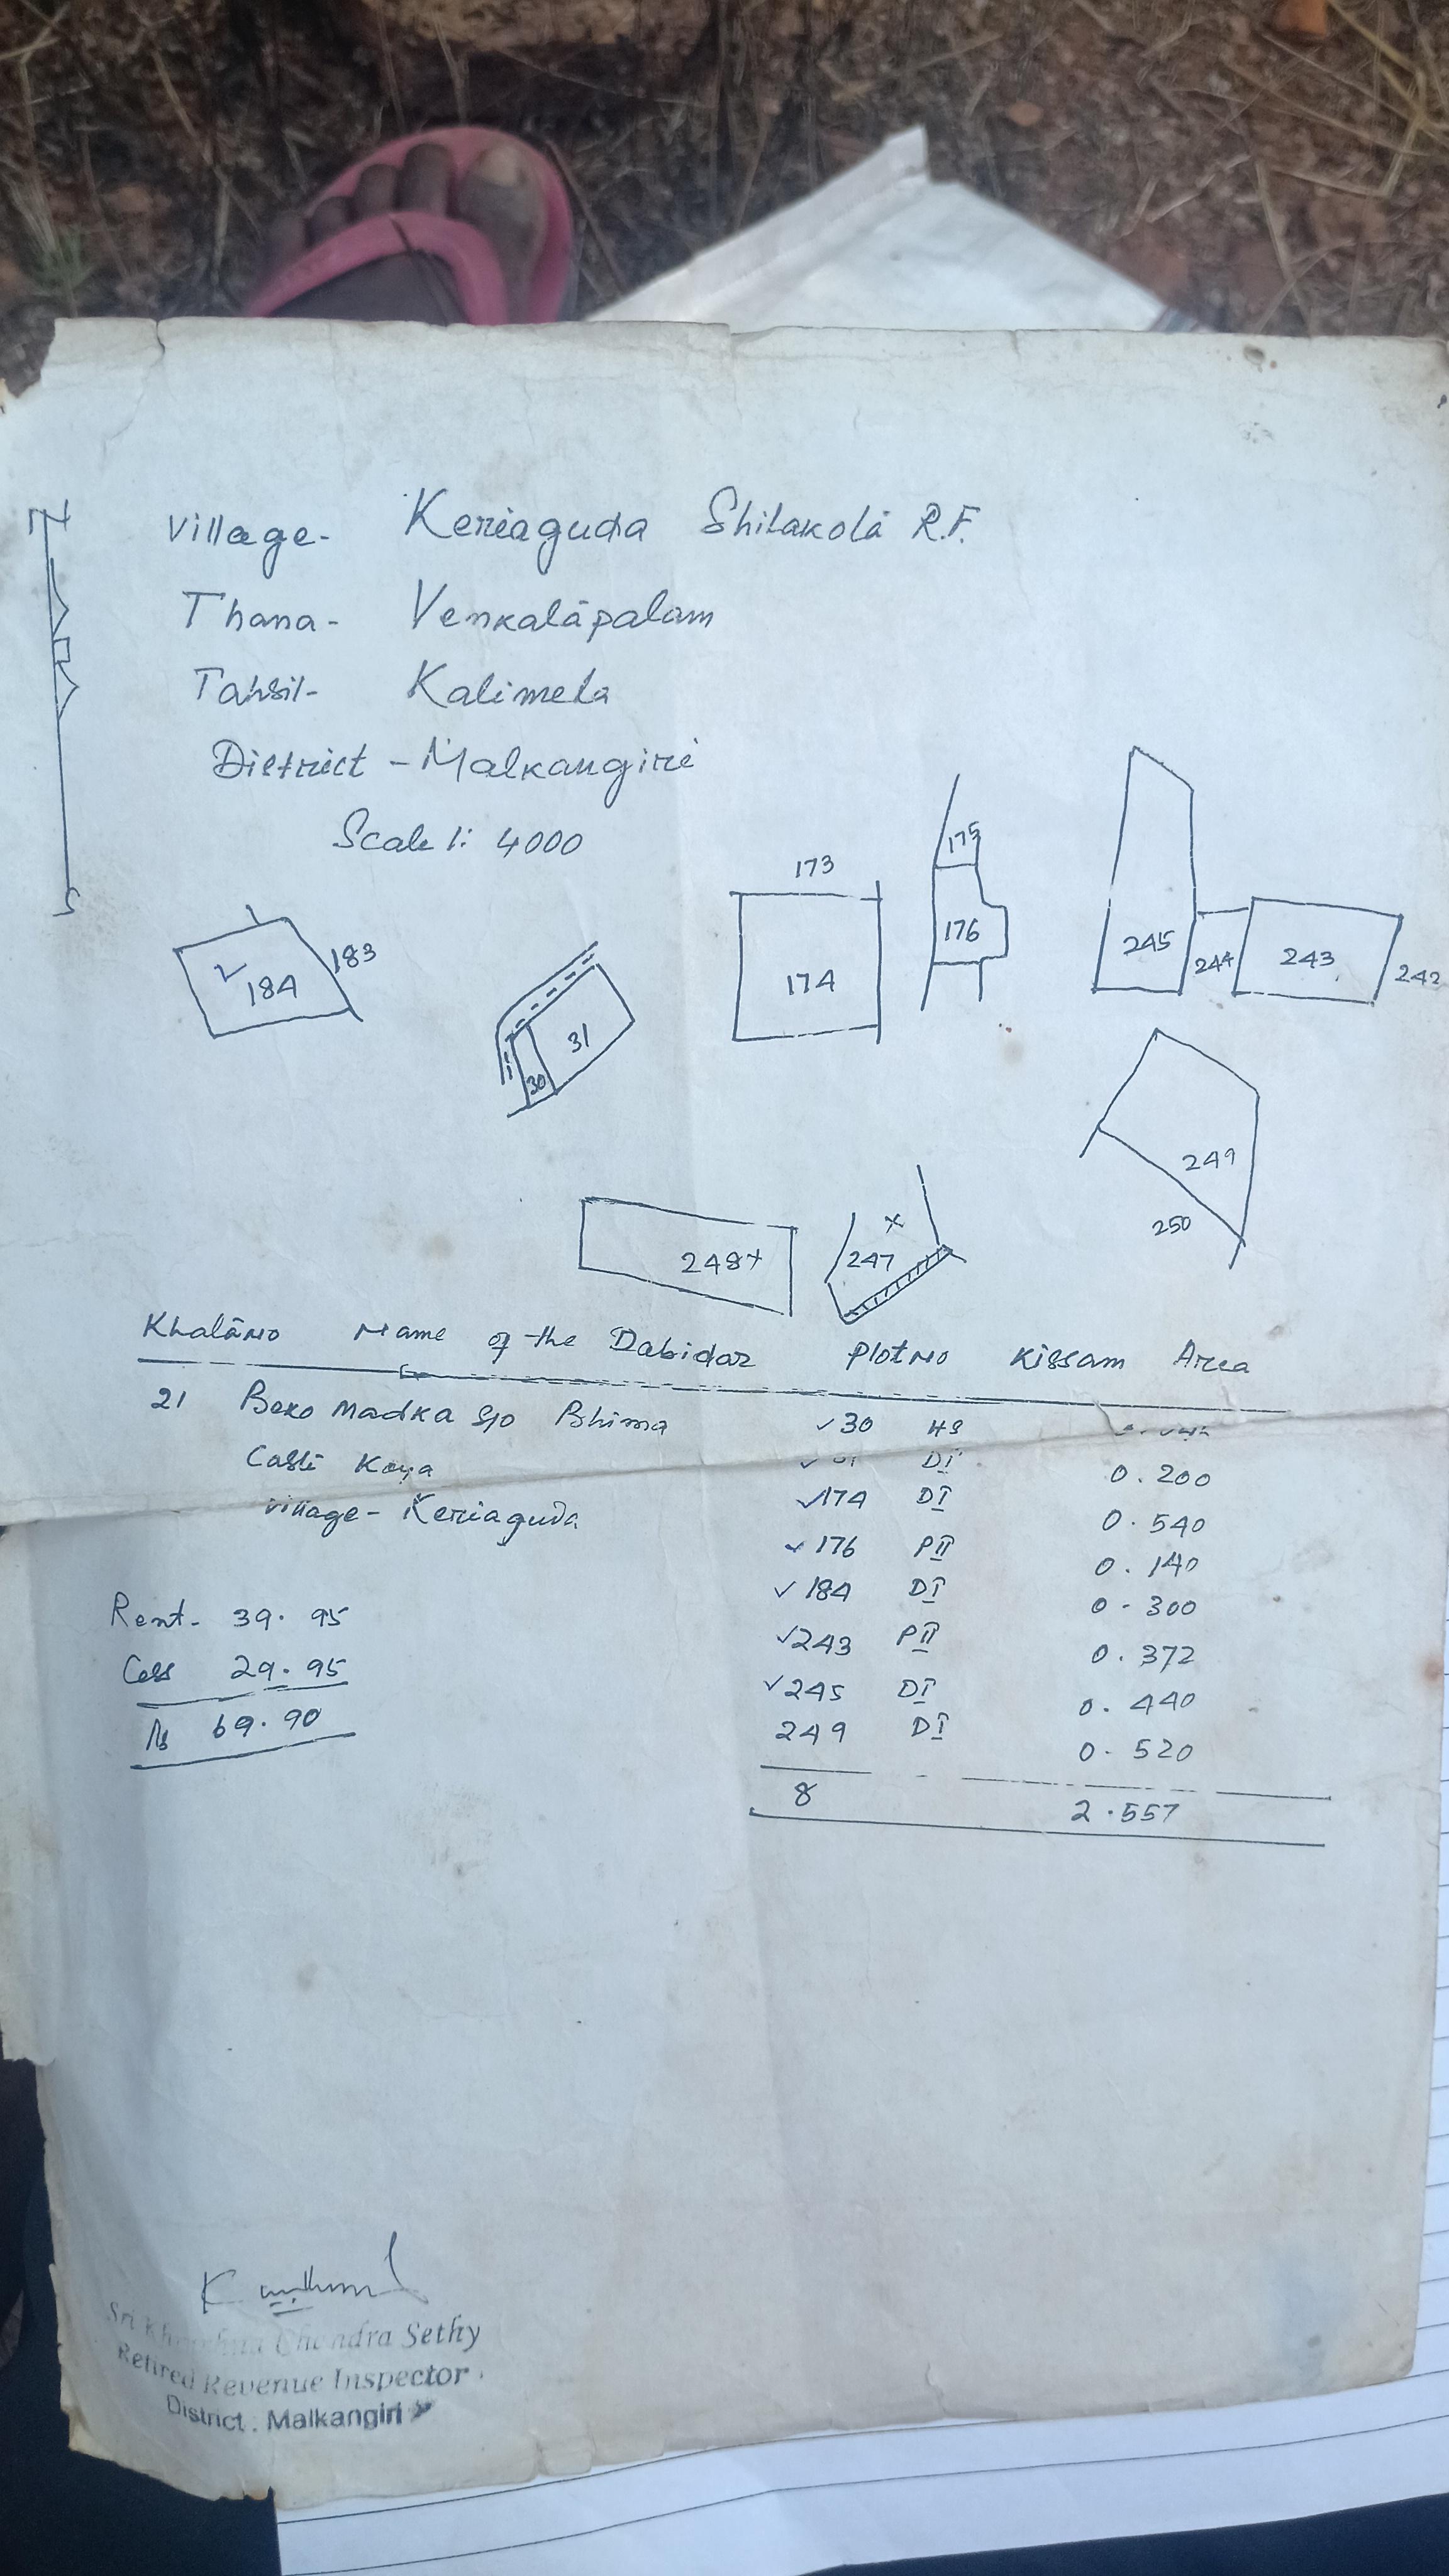 N
Village- Keriaguda Shilakota R.F.
Thana- Venkatapalam
Tahsil- Kalimela
District - Malkangiri
Scale 1: 4000
S
184
183
30
31
173
174
175
176
245
244
243
242
249
250
248 x
x
247
Khata No Name of the Dabidar Plot No Kissam Area
21 Bero Madka S/o Bhima ✓30 HS
Caste Koya DI 0.200
Village- Keriaguda ✓174 DI 0.540
✓176 PII 0.140
✓184 DI 0.300
✓243 PII 0.372
✓245 DI 0.440
249 DI 0.520
8 2.557
Rent- 39.95
Cess 29.95
Rs 69.90
Sri Chandra Sethy
Retired Revenue Inspector
District. Malkangiri